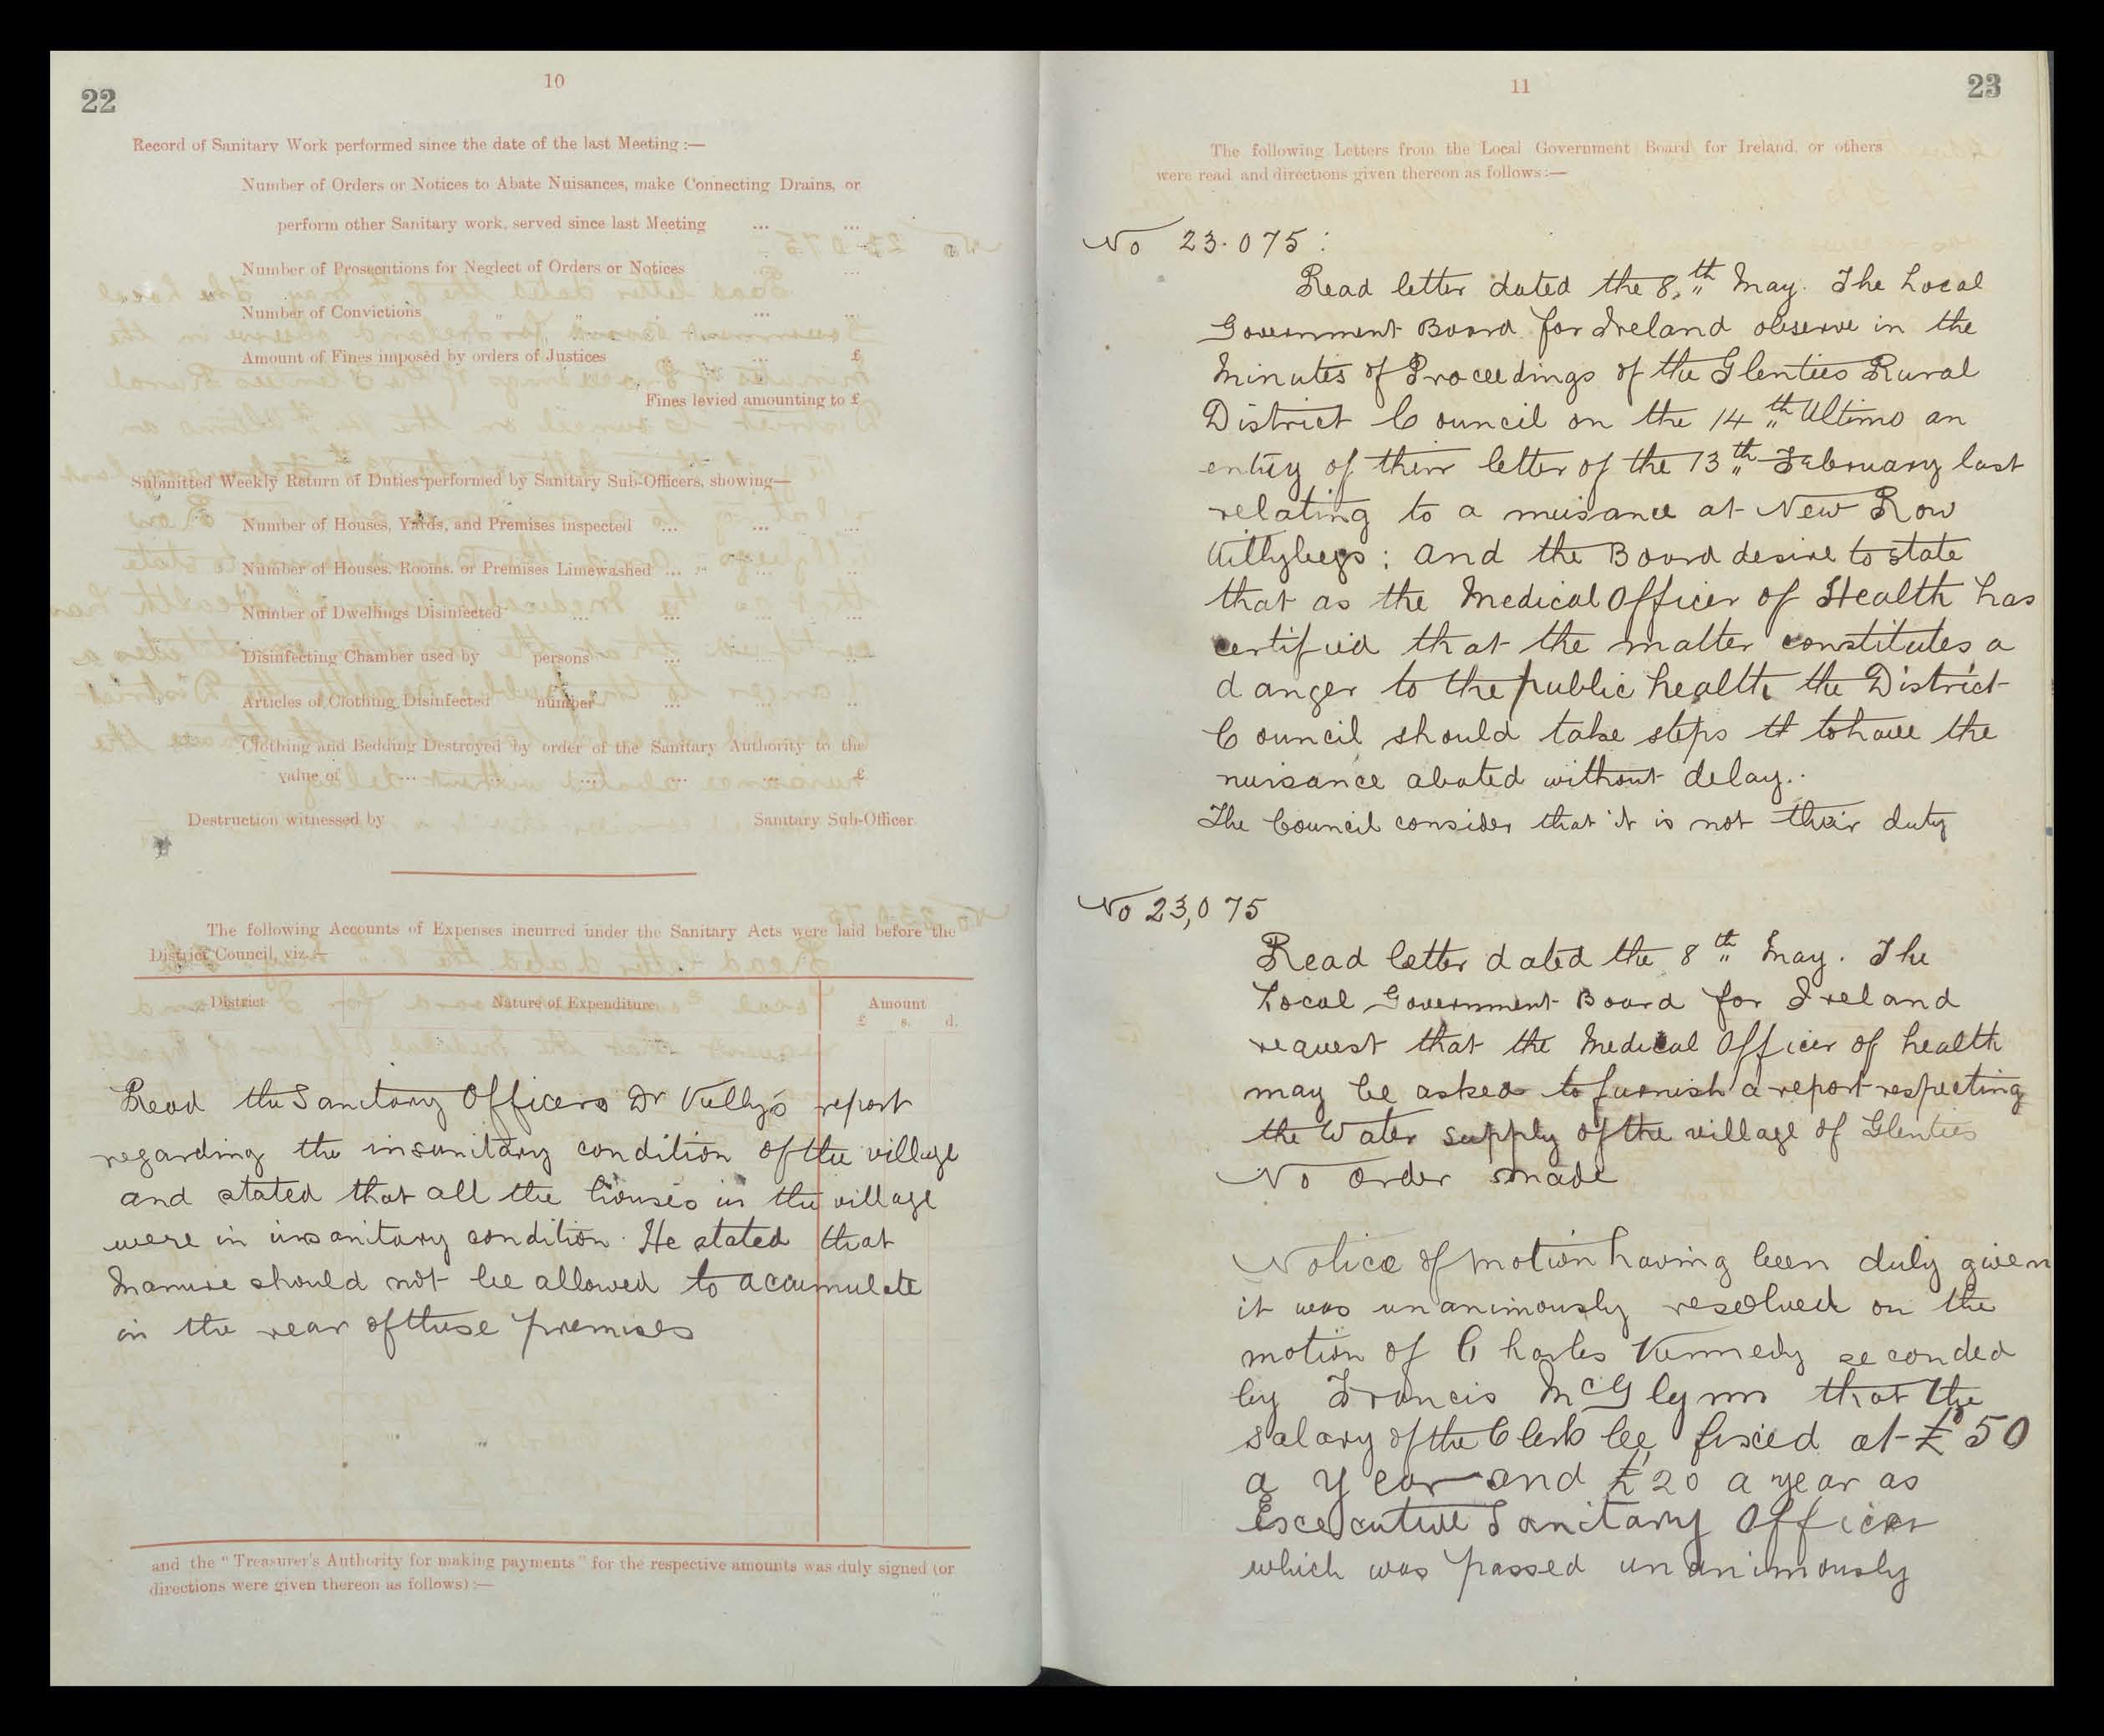 22
10
Record of Sanitary Work performed since the date of the last Meeting :—
Number of Orders or Notices to Abate Nuisances, make Connecting Drains, or
perform other Sanitary work, served since last Meeting ... ...
Number of Prosecutions for Neglect of Orders or Notices ... ...
Number of Convictions " " ... ...
Amount of Fines imposed by orders of Justices ... £
Fines levied amounting to £
Submitted Weekly Return of Duties performed by Sanitary Sub-Officers, showing—
Number of Houses, Yards, and Premises inspected ... ... ...
Number of Houses, Rooms, or Premises Limewashed ... ... ...
Number of Dwellings Disinfected ... ... ... ...
Disinfecting Chamber used by persons ... ... ...
Articles of Clothing Disinfected number ... ... ...
Clothing and Bedding Destroyed by order of the Sanitary Authority to the
value of ... ... ... ... ... £
Destruction witnessed by Sanitary Sub-Officer
The following Accounts of Expenses incurred under the Sanitary Acts were laid before the
District Council, viz.:—
District Nature of Expenditure Amount
£ s. d.
Read the Sanitary Officers Dr Kelly's report
regarding the insanitary condition of the village
and stated that all the houses in the village
were in insanitary condition. He stated that
Manure should not be allowed to acumulate
in the rear of these premises
and the "Treasurer's Authority for making payments" for the respective amounts was duly signed (or
directions were given thereon as follows) :—
11
23
The following Letters from the Local Government Board for Ireland, or others
were read and directions given thereon as follows :—
No 23.075 :
Read letter dated the 8th May. The Local
Government Board for Ireland observe in the
Minutes of Proceedings of the Glenties Rural
District Council on the 14th Ultimo an
entry of their letter of the 13th February last
relating to a nuisance at New Row
Killybegs : and the Board desire to state
that as the Medical Officer of Health has
certified that the matter constitutes a
danger to the public health the District
Council should take steps tt to have the
nuisance abated without delay..
The Council consider that it is not their duty
No 23,075
Read letter dated the 8th May. The
Local Government Board for Ireland
request that the Medical Officer of health
may be asked to furnish a report respecting
the Water supply of the village of Glenties
No Order made
Notice of motion having been duly given
it was unanimously resolved on the
motion of Charles Kennedy seconded
by Francis McGlynn that the
salary of the Clerk be fixed at £50
a year and £20 a year as
Excecutive Sanitary Officer
which was passed unanimously